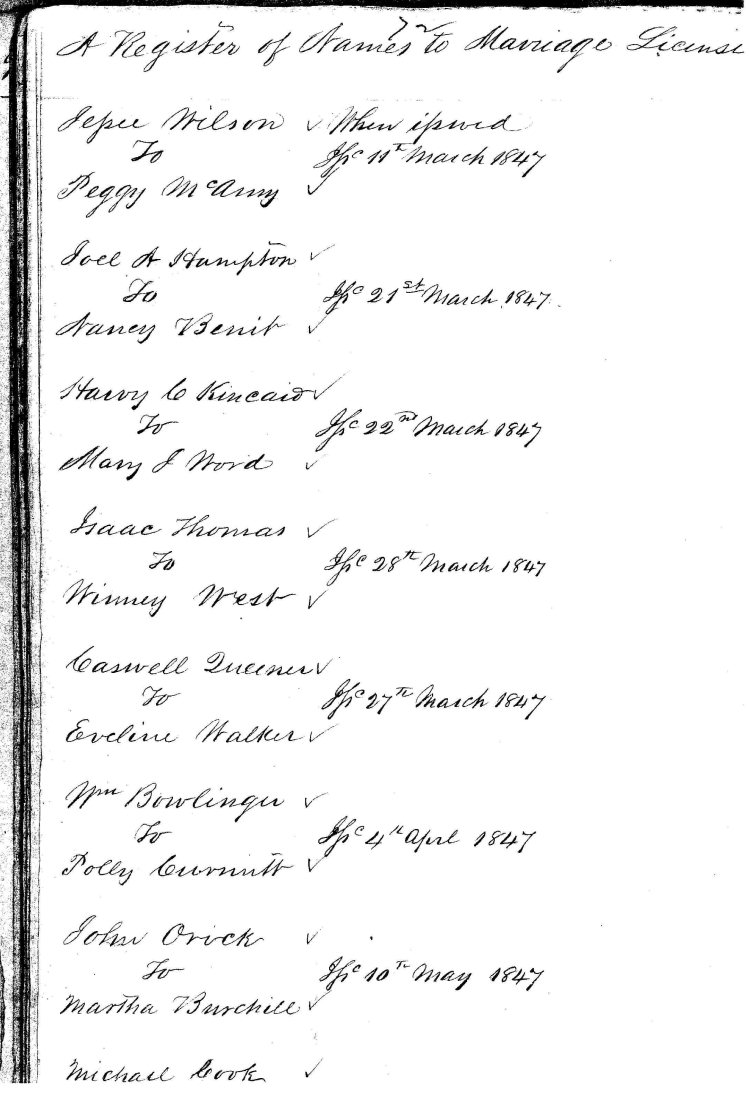 72
A Register of Names to Marriage License
Jessee Wilson ✓ When issued
To Issc 11th March 1847
Peggy McAmy ✓
Joel A Hampton ✓
To Issc 21st March 1847
Nancy Benit ✓
Harvy C Kincaid ✓
To Issc 22nd March 1847
Mary J Word ✓
Isaac Thomas ✓
To Issc 28th March 1847
Winney West ✓
Caswell Queener ✓
To Issc 27th March 1847
Eveline Walker ✓
Wm Bowlinger ✓
To Issc 4th April 1847
Polly Curnutt ✓
John Orick ✓
To Issc 10th May 1847
Martha Burchell ✓
Michael Cook ✓